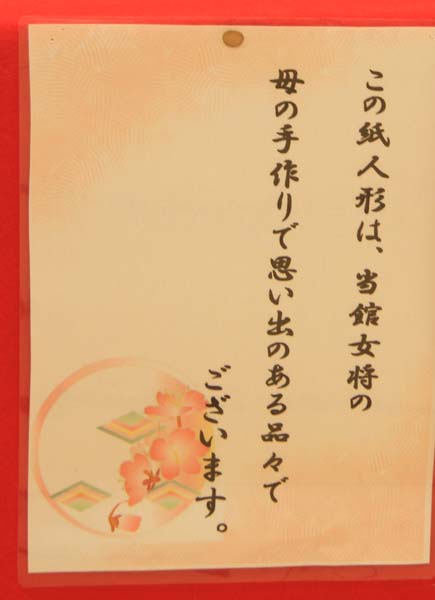 この紙人形は、当館女将の
母の手作りで思い出のある品々で
ございます。